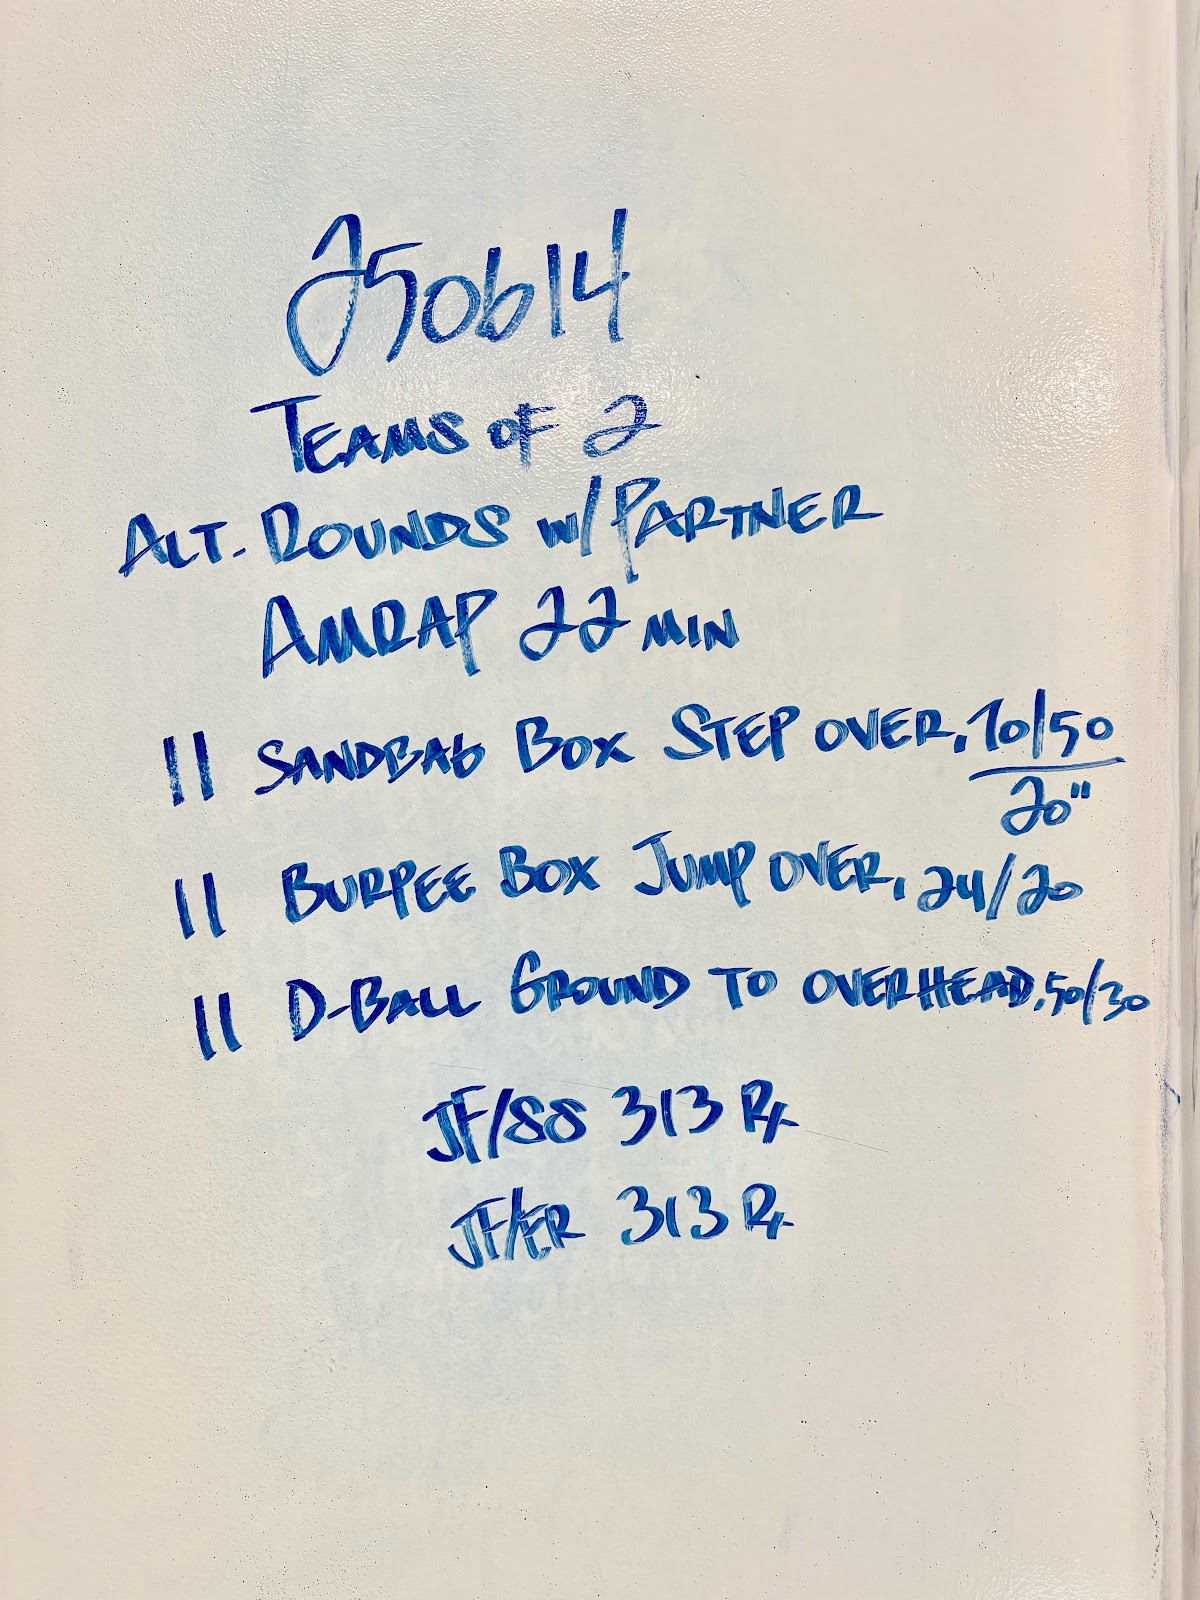 250614
TEAMS OF 2
ALT. ROUNDS W/ PARTNER
AMRAP 22 MIN
11 SANDBAG BOX STEP OVER, 70/50
20"
11 BURPEE BOX JUMP OVER, 24/20
11 D-BALL GROUND TO OVERHEAD, 50/30
JF/SS 313 Rx
JF/ER 313 Rx